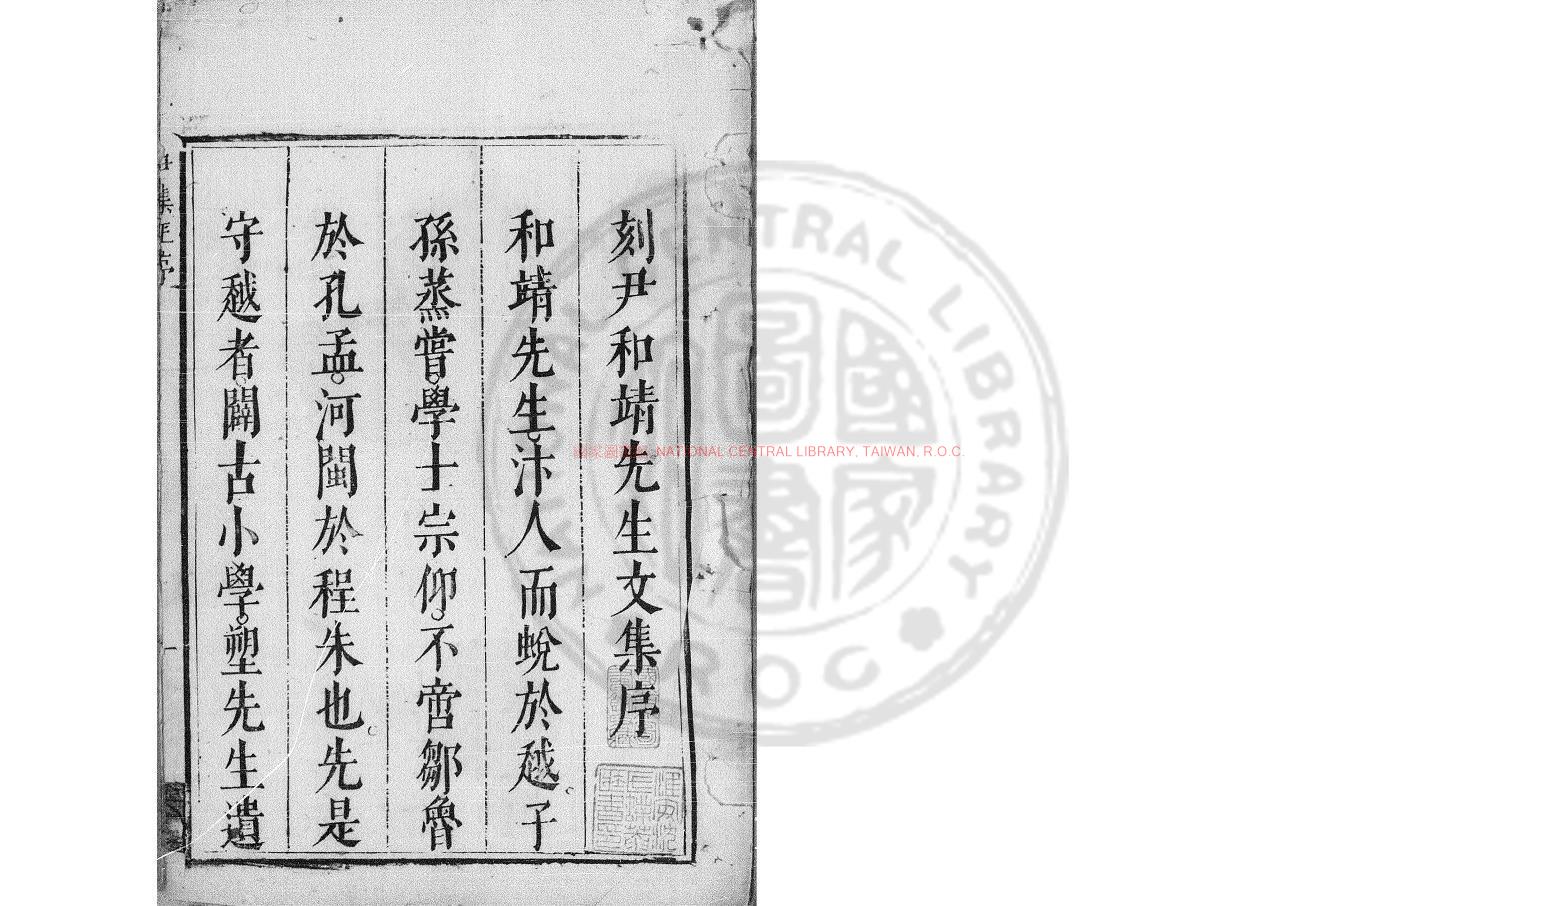 刻尹和靖先生文集序
和靖先生汴人而蛻於越子
孫蒸嘗學士宗仰不啻鄒魯
於孔孟河閩於程朱也先是
守越者闢古小學塑先生遺
國家圖書館 NATIONAL CENTRAL LIBRARY, TAIWAN, R.O.C.
CENTRAL LIBRARY
ROC